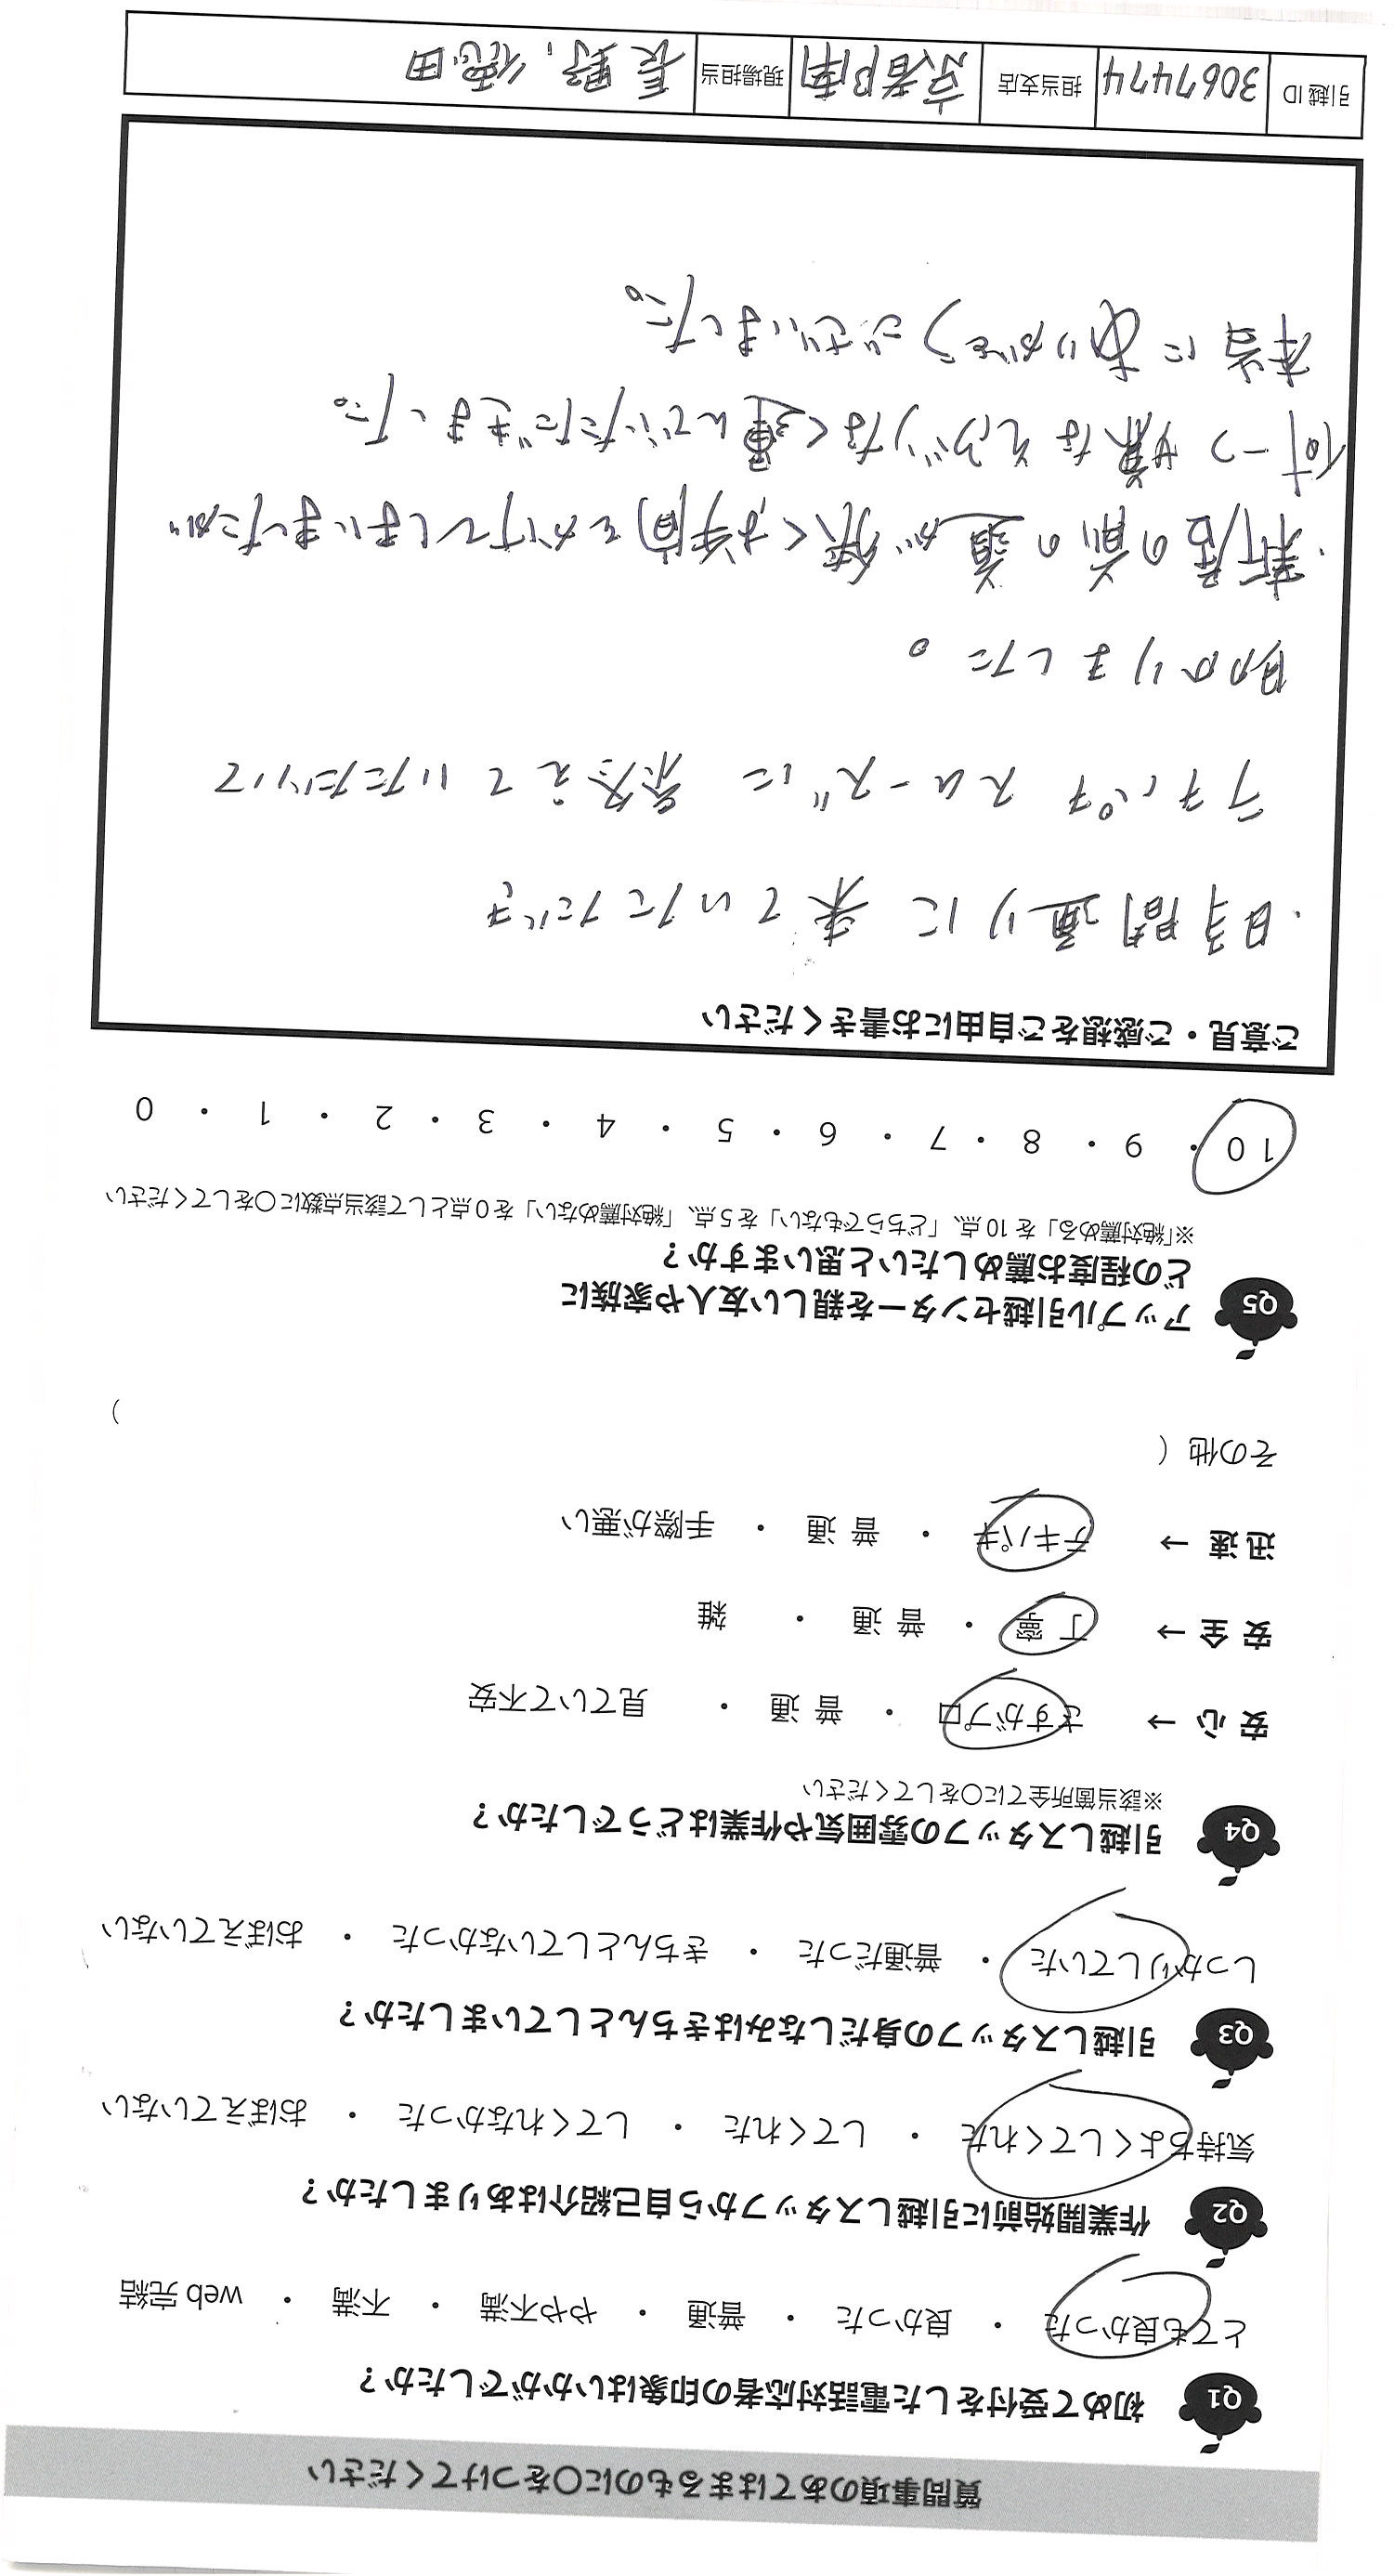 質問事項のあてはまるものに〇をつけてください
Q1 初めて受付をした電話対応者の印象はいかがでしたか？
とても良かった ・ 良かった ・ 普通 ・ やや不満 ・ 不満 ・ web 完結
Q2 作業開始前に引越しスタッフから自己紹介はありましたか？
気持ちよくしてくれた ・ してくれた ・ してくれなかった ・ おぼえていない
Q3 引越しスタッフの身だしなみはきちんとしていましたか？
しっかりしていた ・ 普通だった ・ きちんとしていなかった ・ おぼえていない
Q4 引越しスタッフの雰囲気や作業はどうでしたか？
※該当箇所全てに〇をしてください
安 心 → さすがプロ ・ 普 通 ・ 見ていて不安
安 全 → 丁 寧 ・ 普 通 ・ 雑
迅 速 → テキパキ ・ 普 通 ・ 手際が悪い
その他（ ）
Q5 アップル引越センターを親しい友人や家族に
どの程度お薦めしたいと思いますか？
※「絶対薦める」を 10 点、「どちらでもない」を 5 点、「絶対薦めない」を 0 点として該当点数に〇をしてください
10 ・ 9 ・ 8 ・ 7 ・ 6 ・ 5 ・ 4 ・ 3 ・ 2 ・ 1 ・ 0
ご意見・ご感想をご自由にお書きください
・時間通りに来ていただき
テキパキ スムーズに 終えて いただいて
助かりました。
・新居の前の道が狭くお手間をかけてしまいましたが
何一つ嫌なそぶりなく運んでいただきました。
本当にありがとうございました。
引越 ID 3067474 担当支店 京都南 現場担当 長野, 徳田